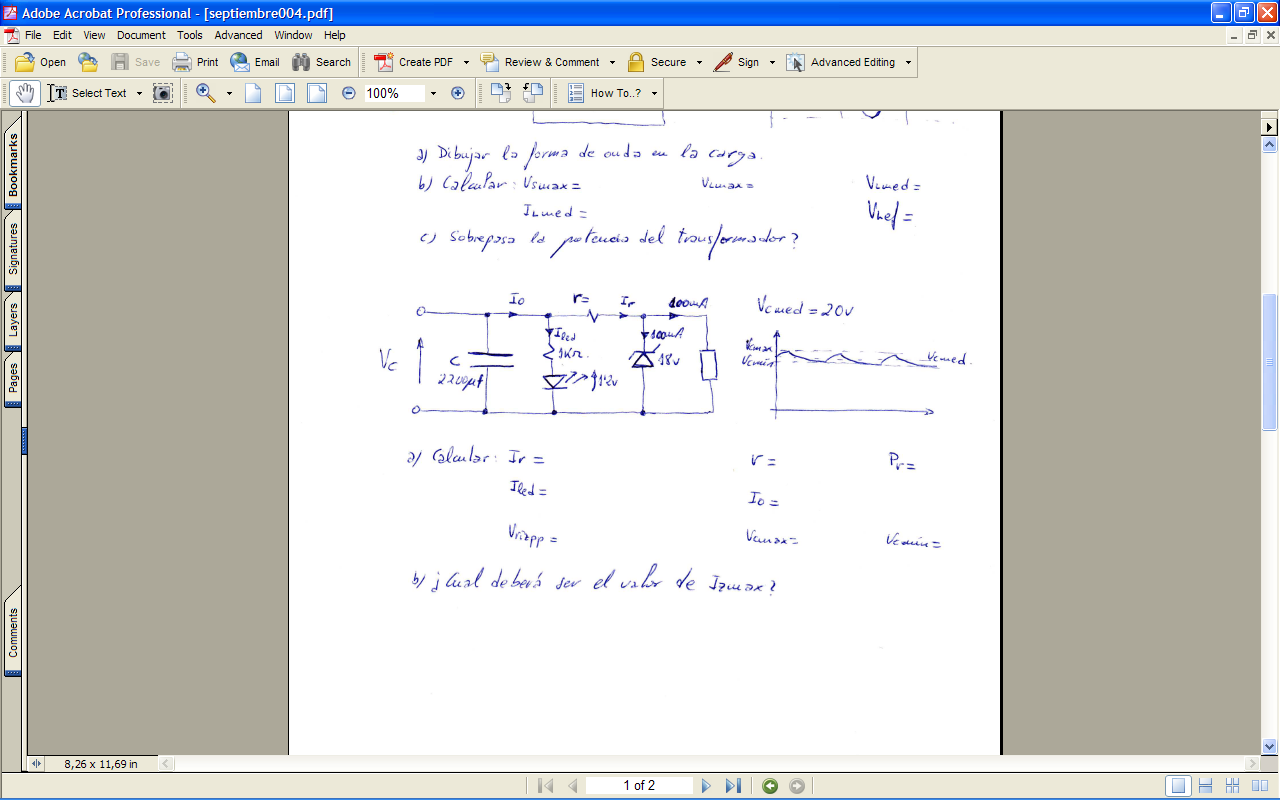 Adobe Acrobat Professional - [septiembre004.pdf]
File Edit View Document Tools Advanced Window Help
Open Save Print Email Search Create PDF Review & Comment Secure Sign Advanced Editing
Select Text 100% How To..?
Bookmarks
Signatures
Layers
Pages
Comments
a) Dibujar la forma de onda en la carga.
b) Calcular: Vsmax = VLmax = VLmed =
ILmed = VLef =
c) Sobrepasa la potencia del transformador?
Io r= Ir 100mA Vcmed = 20v
Vc C 2200µf Iled 1KΩ 1'2v 100mA 18v
Vcmax
Vcmin Vcmed.
a) Calcular: Ir = r = Pr =
Iled = Io =
Vrizpp = Vcmax = Vcmin =
b) ¿Cual deberá ser el valor de Izmax?
8,26 x 11,69 in
1 of 2